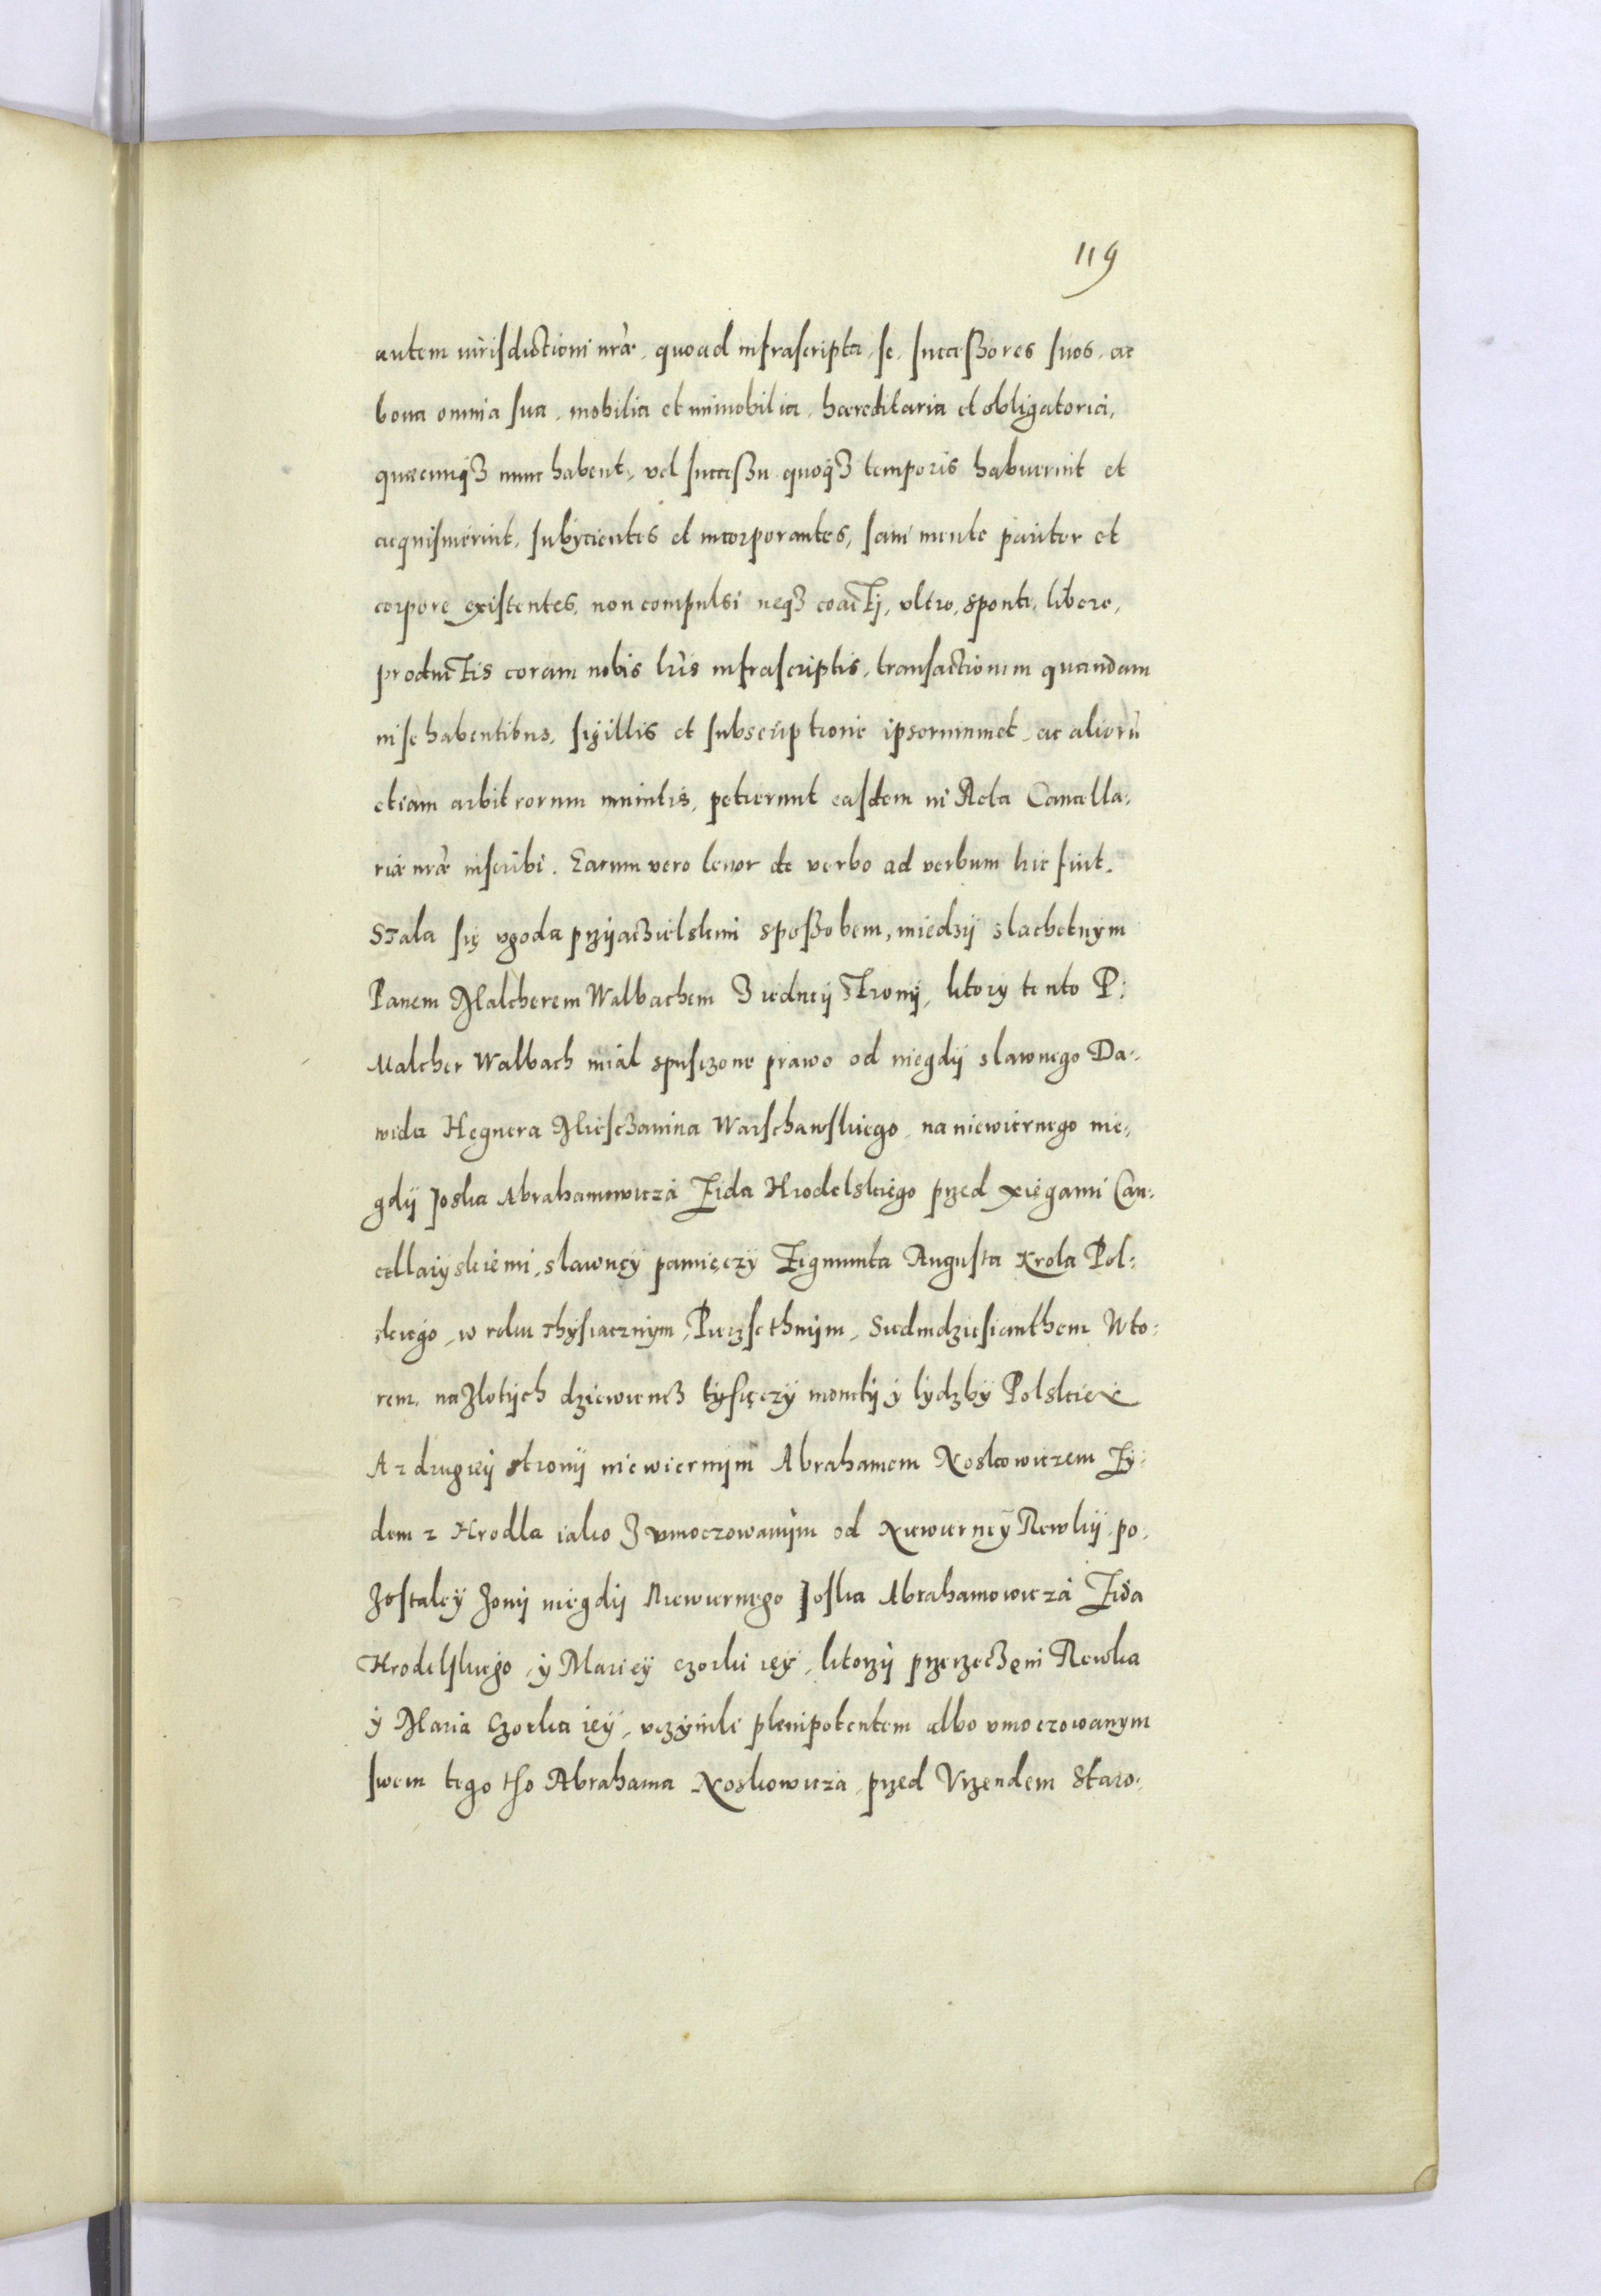 119
autem iurisdictioni nr̃æ, quoad infrascripta, se, successores suos, ac
bona omnia sua, mobilia et immobilia, hæreditaria et obligatoria,
quæcunqȝ nunc habent, vel successu quoqȝ temporis habuerint et
acquisiuerint, subÿcientes et incorporantes, sani mente pariter et
corpore existentes, non compulsi neqȝ coactj, vltro, sponte, libere,
productis coram nobis lr̃is infrascriptis, transactionem quandam
in se habentibus, sigillis et subscriptione ipsorummet, ac aliorũ
etiam arbitrorum munitis, petierunt easdem in Acta Cancella-
riæ nr̃æ inscribi. Earum vero tenor de verbo ad verbum hic fuit.
Stala się vgoda przÿaczielskim sposzobem, miedzÿ slachetnÿm
Panem Malcherem Walbachem z iednéÿ stronÿ, ktorÿ tento P:
Malcher Walbach miál spusczone prawo od niegdÿ slawnego Da-
wida Hegnera Miesczanina Warschawskiego, na niewiernego nie-
gdÿ Joska Abrahamowiczá Zida Hrodelskiego przed xięgami Can-
cellarÿskiemi, slawnęÿ pamięczÿ Zigmunta Augusta Krola Pol-
skiego, w roku thÿsiacznÿm, Pieczsethnÿm, Siedmdziesianthem Wto-
rem, na Zlotÿch dziewiencz tÿsięczÿ monetÿ ÿ lÿdzbÿ Polskieÿ
A z drugieÿ stronÿ niewiernÿm Abrahamem Noskowiczem Zÿ-
dem z Hrodla iako z vmoczowanÿm od Niewiernęÿ Rewkÿ, po-
zostaléÿ zonÿ niegdÿ Niewiernego Joska Abrahamowiczá Zida
Hrodelskiego, ÿ Mariéÿ czorki ieÿ, ktorzÿ przerzeczęni Rewka
ÿ Maria Czorka ieÿ, vczÿnili plenipotentem albo vmoczowanym
swem tego tho Abrahama Noskowiczá, przed Vrzendem Staro-